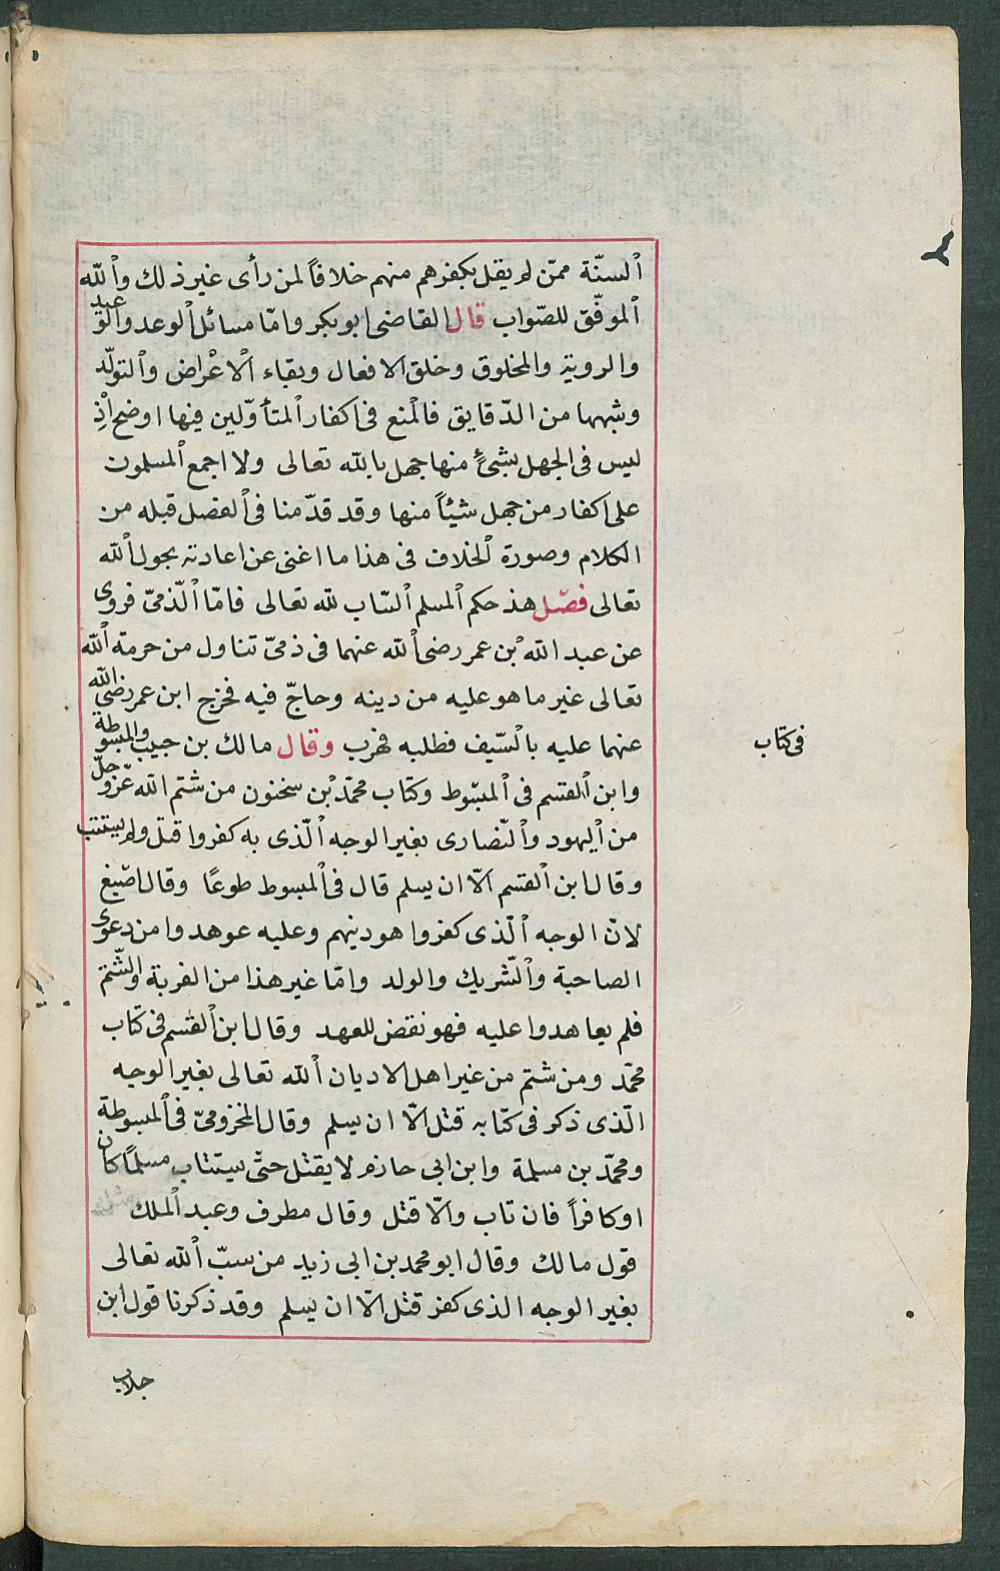 السنّة ممّن لم يقل بكفرهم منهم خلافاً لمن رأى غير ذلك والله
الموفّق للصّواب قال القاضى ابو بكر وامّا مسائل الوعد والوعيد
والروية والمخلوق وخلق الافعال وبقاء الاعراض والتولّد
وشبهها من الدّقايق فالمنع فى اكفار المتأوّلين فيها اوضح اذ
ليس فى الجهل بشئ منها جهل بالله تعالى ولا اجمع المسلمون
على اكفار من جهل شيئاً منها وقد قدّمنا فى الفصل قبله من
الكلام وصورة الخلاف فى هذا ما اغنى عن اعادته بحول الله
تعالى فصل هذ حكم المسلم السّاب لله تعالى فامّا الذّمىّ فروى
عن عبد الله بن عمر رضى الله عنهما فى ذمىّ تناول من حرمة الله
تعالى غير ما هو عليه من دينه وحاجّ فيه فخرج ابن عمر رضى الله
عنهما عليه بالسّيف فطلبه فهرب وقال مالك بن حبيب والمبسوطة
فى كتاب
وابن القسم فى المبسوط وكتاب محمّد بن سخنون من شتم الله عزّ وجلّ
من اليهود والنّصارى بغير الوجه الّذى به كفروا قتل ولم يستتب
وقال ابن القسم الّا ان يسلم قال فى المبسوط طوعًا وقال اصبغ
لانّ الوجه الّذى كفروا هو دينهم وعليه عوهدوا من دعوى
الصاحبة والشّريك والولد وامّا غير هذا من الفرية والشّتم
فلم يعاهدوا عليه فهو نقض للعهد وقال ابن القسم فى كتاب
محمّد ومن شتم من غير اهل الاديان الله تعالى بغير الوجه
الّذى ذكر فى كتابه قتل الّا ان يسلم وقال المخزومىّ فى المبسوطة
ومحمّد بن مسلمة وابن ابى حازم لا يقتل حتّى يستتاب مسلمًا كان
او كافراً فان تاب والّا قتل وقال مطرف وعبد الملك مثل
قول مالك وقال ابو محمد بن ابى زيد من سبّ الله تعالى
بغير الوجه الذى كفر قتل الّا ان يسلم وقد ذكرنا قول ابن
جلاب